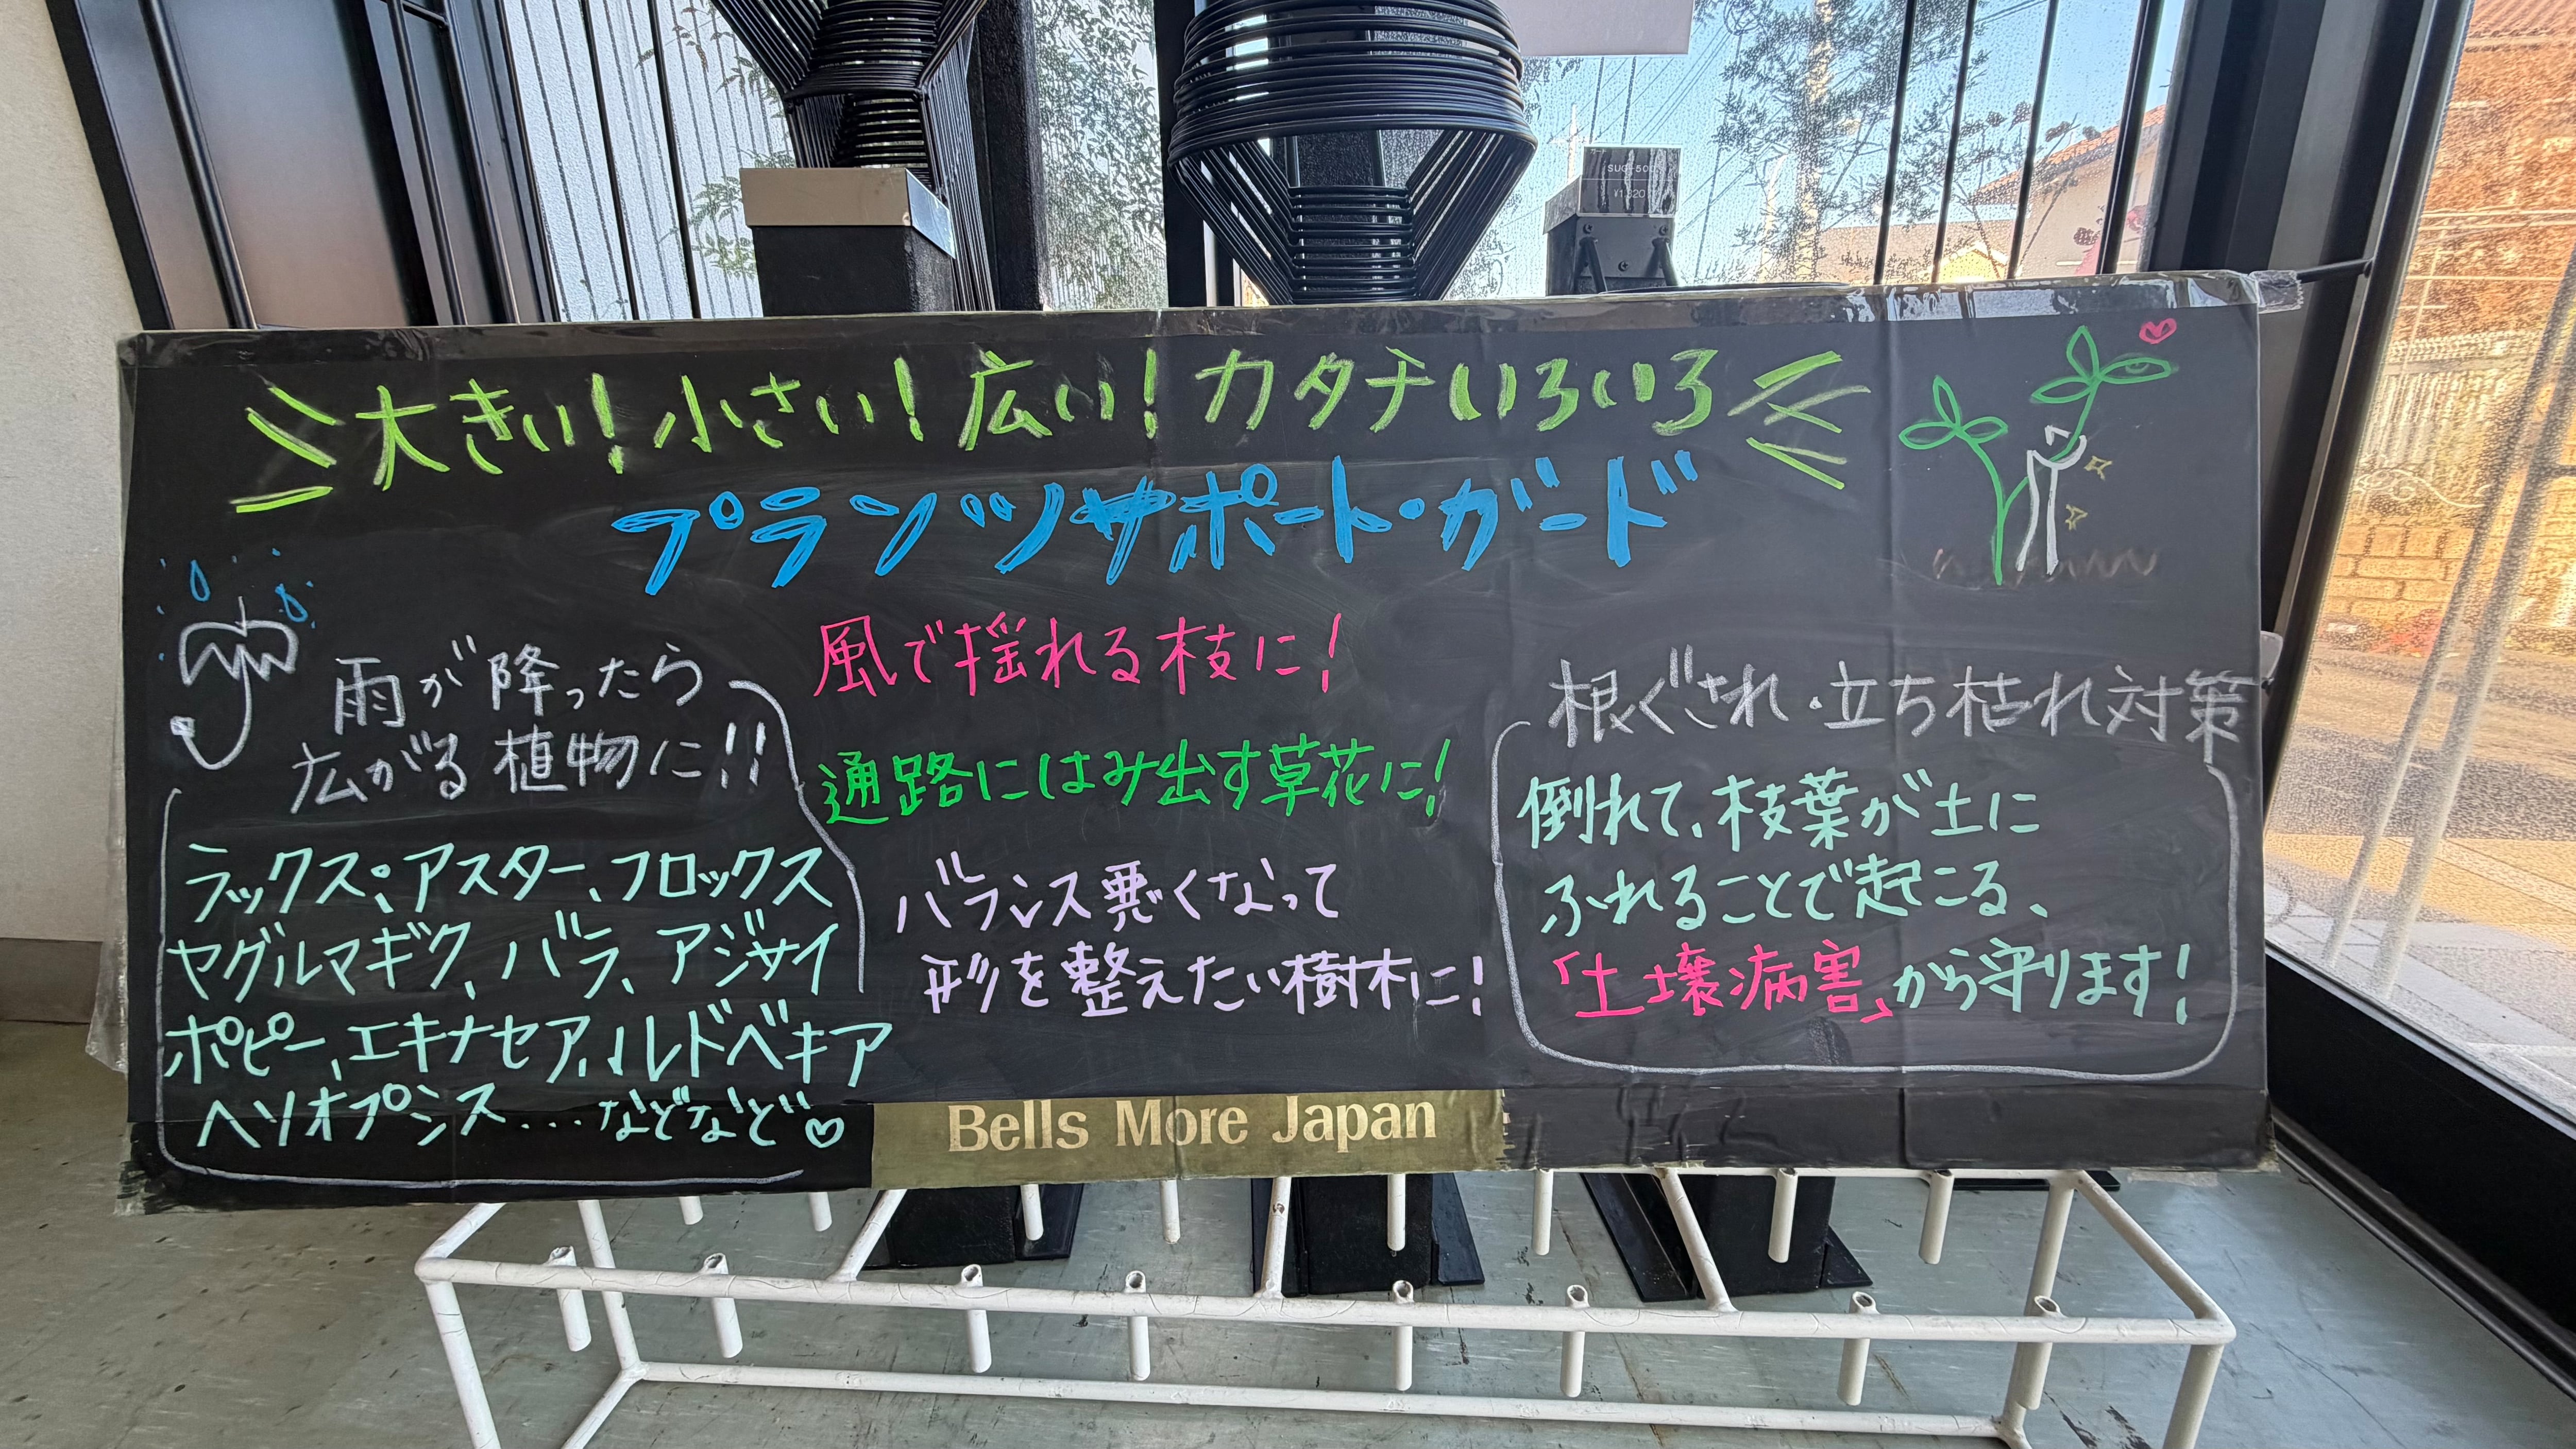 SUG-50
大きい！小さい！広い！カタチいろいろ
プランツサポート・ガード
雨が降ったら
広がる植物に!!
ラックス、アスター、フロックス
ヤグルマギク、バラ、アジサイ
ポピー、エキナセア、ルドベキア
ヘリオプシス...などなど♡
風で揺れる枝に！
通路にはみ出す草花に！
バランス悪くなって
形を整えたい樹木に！
根ぐされ・立ち枯れ対策
倒れて、枝葉が土に
ふれることで起こる、
「土壌病害」から守ります！
Bells More Japan